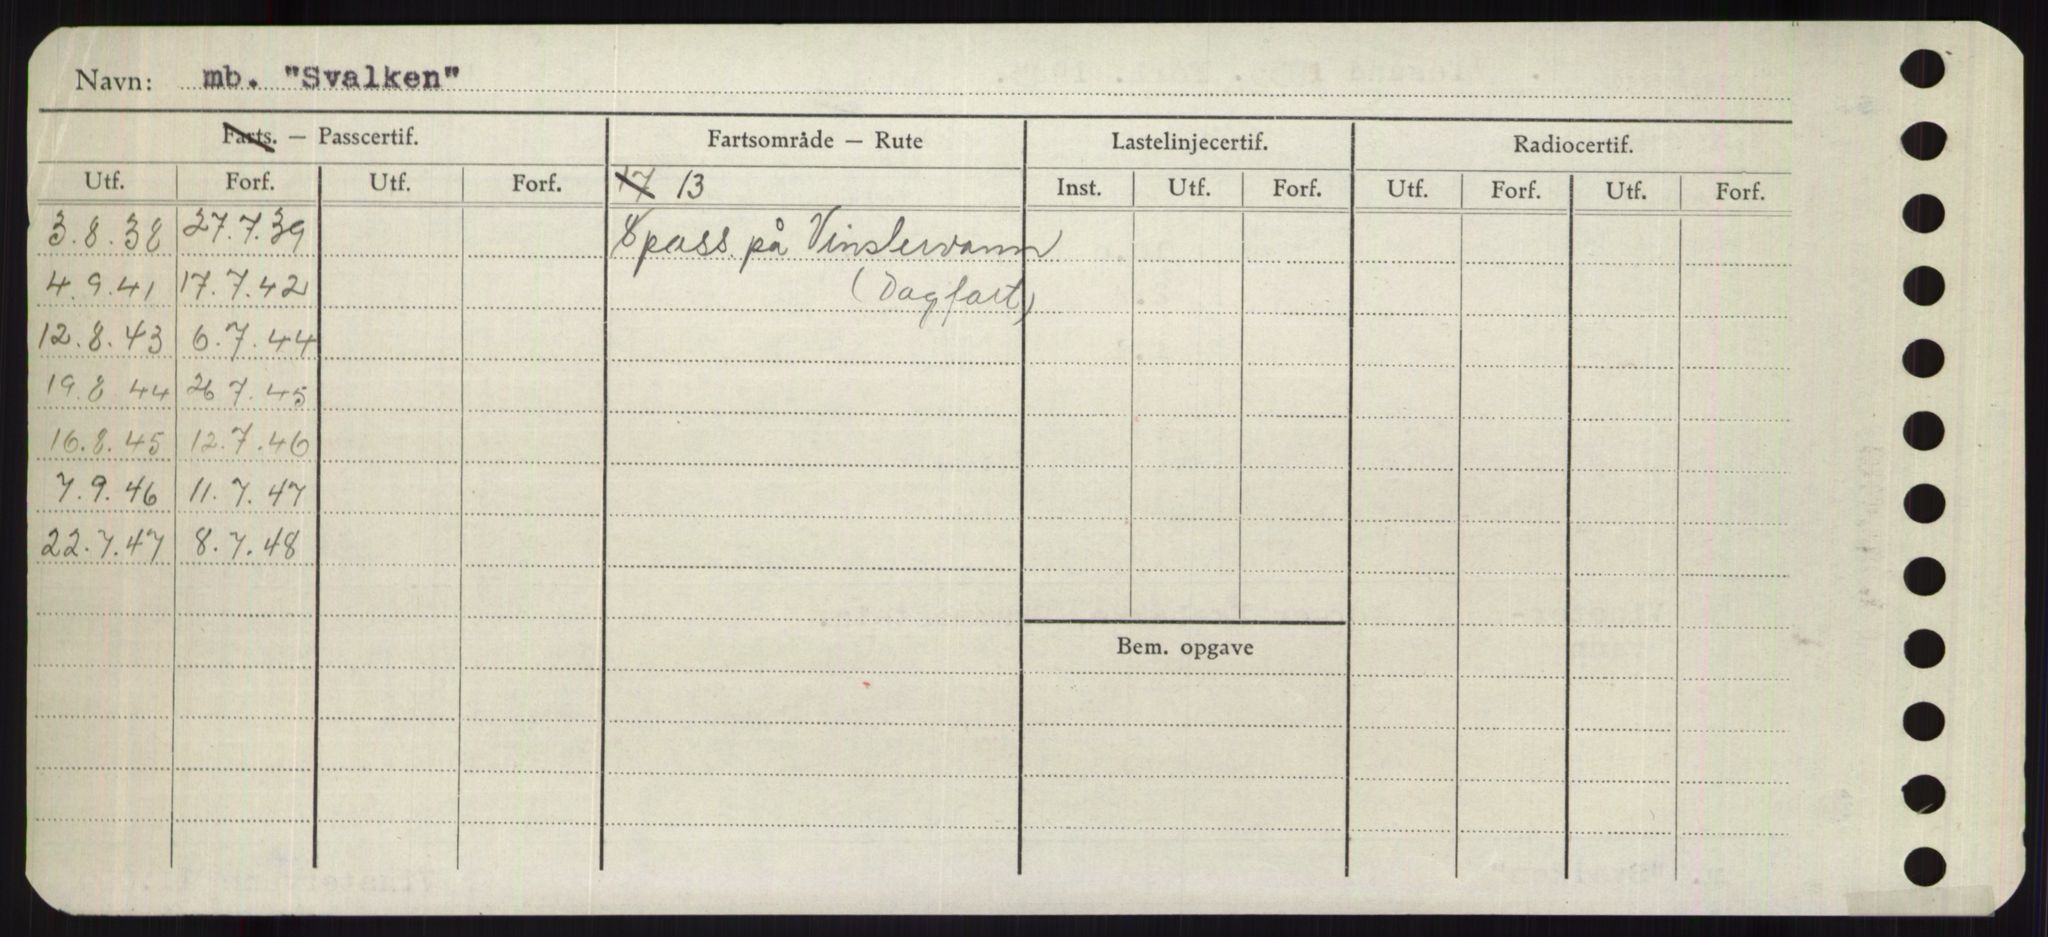 Navn: mb. "Svalken"
Farts. — Passcertif. Fartsområde — Rute Lastelinjecertif. Radiocertif.
Utf. Forf. Utf. Forf. 17 13 Inst. Utf. Forf. Utf. Forf. Utf. Forf.
3.8.38 27.7.39 pass på Vinstervann
4.9.41 17.7.42 (Dagfart)
12.8.43 6.7.44
19.8 44 26 7.45
16.8.45 12.7.46
7.9.46 11.7.47
22.7.47 8.7.48
Bem. opgave